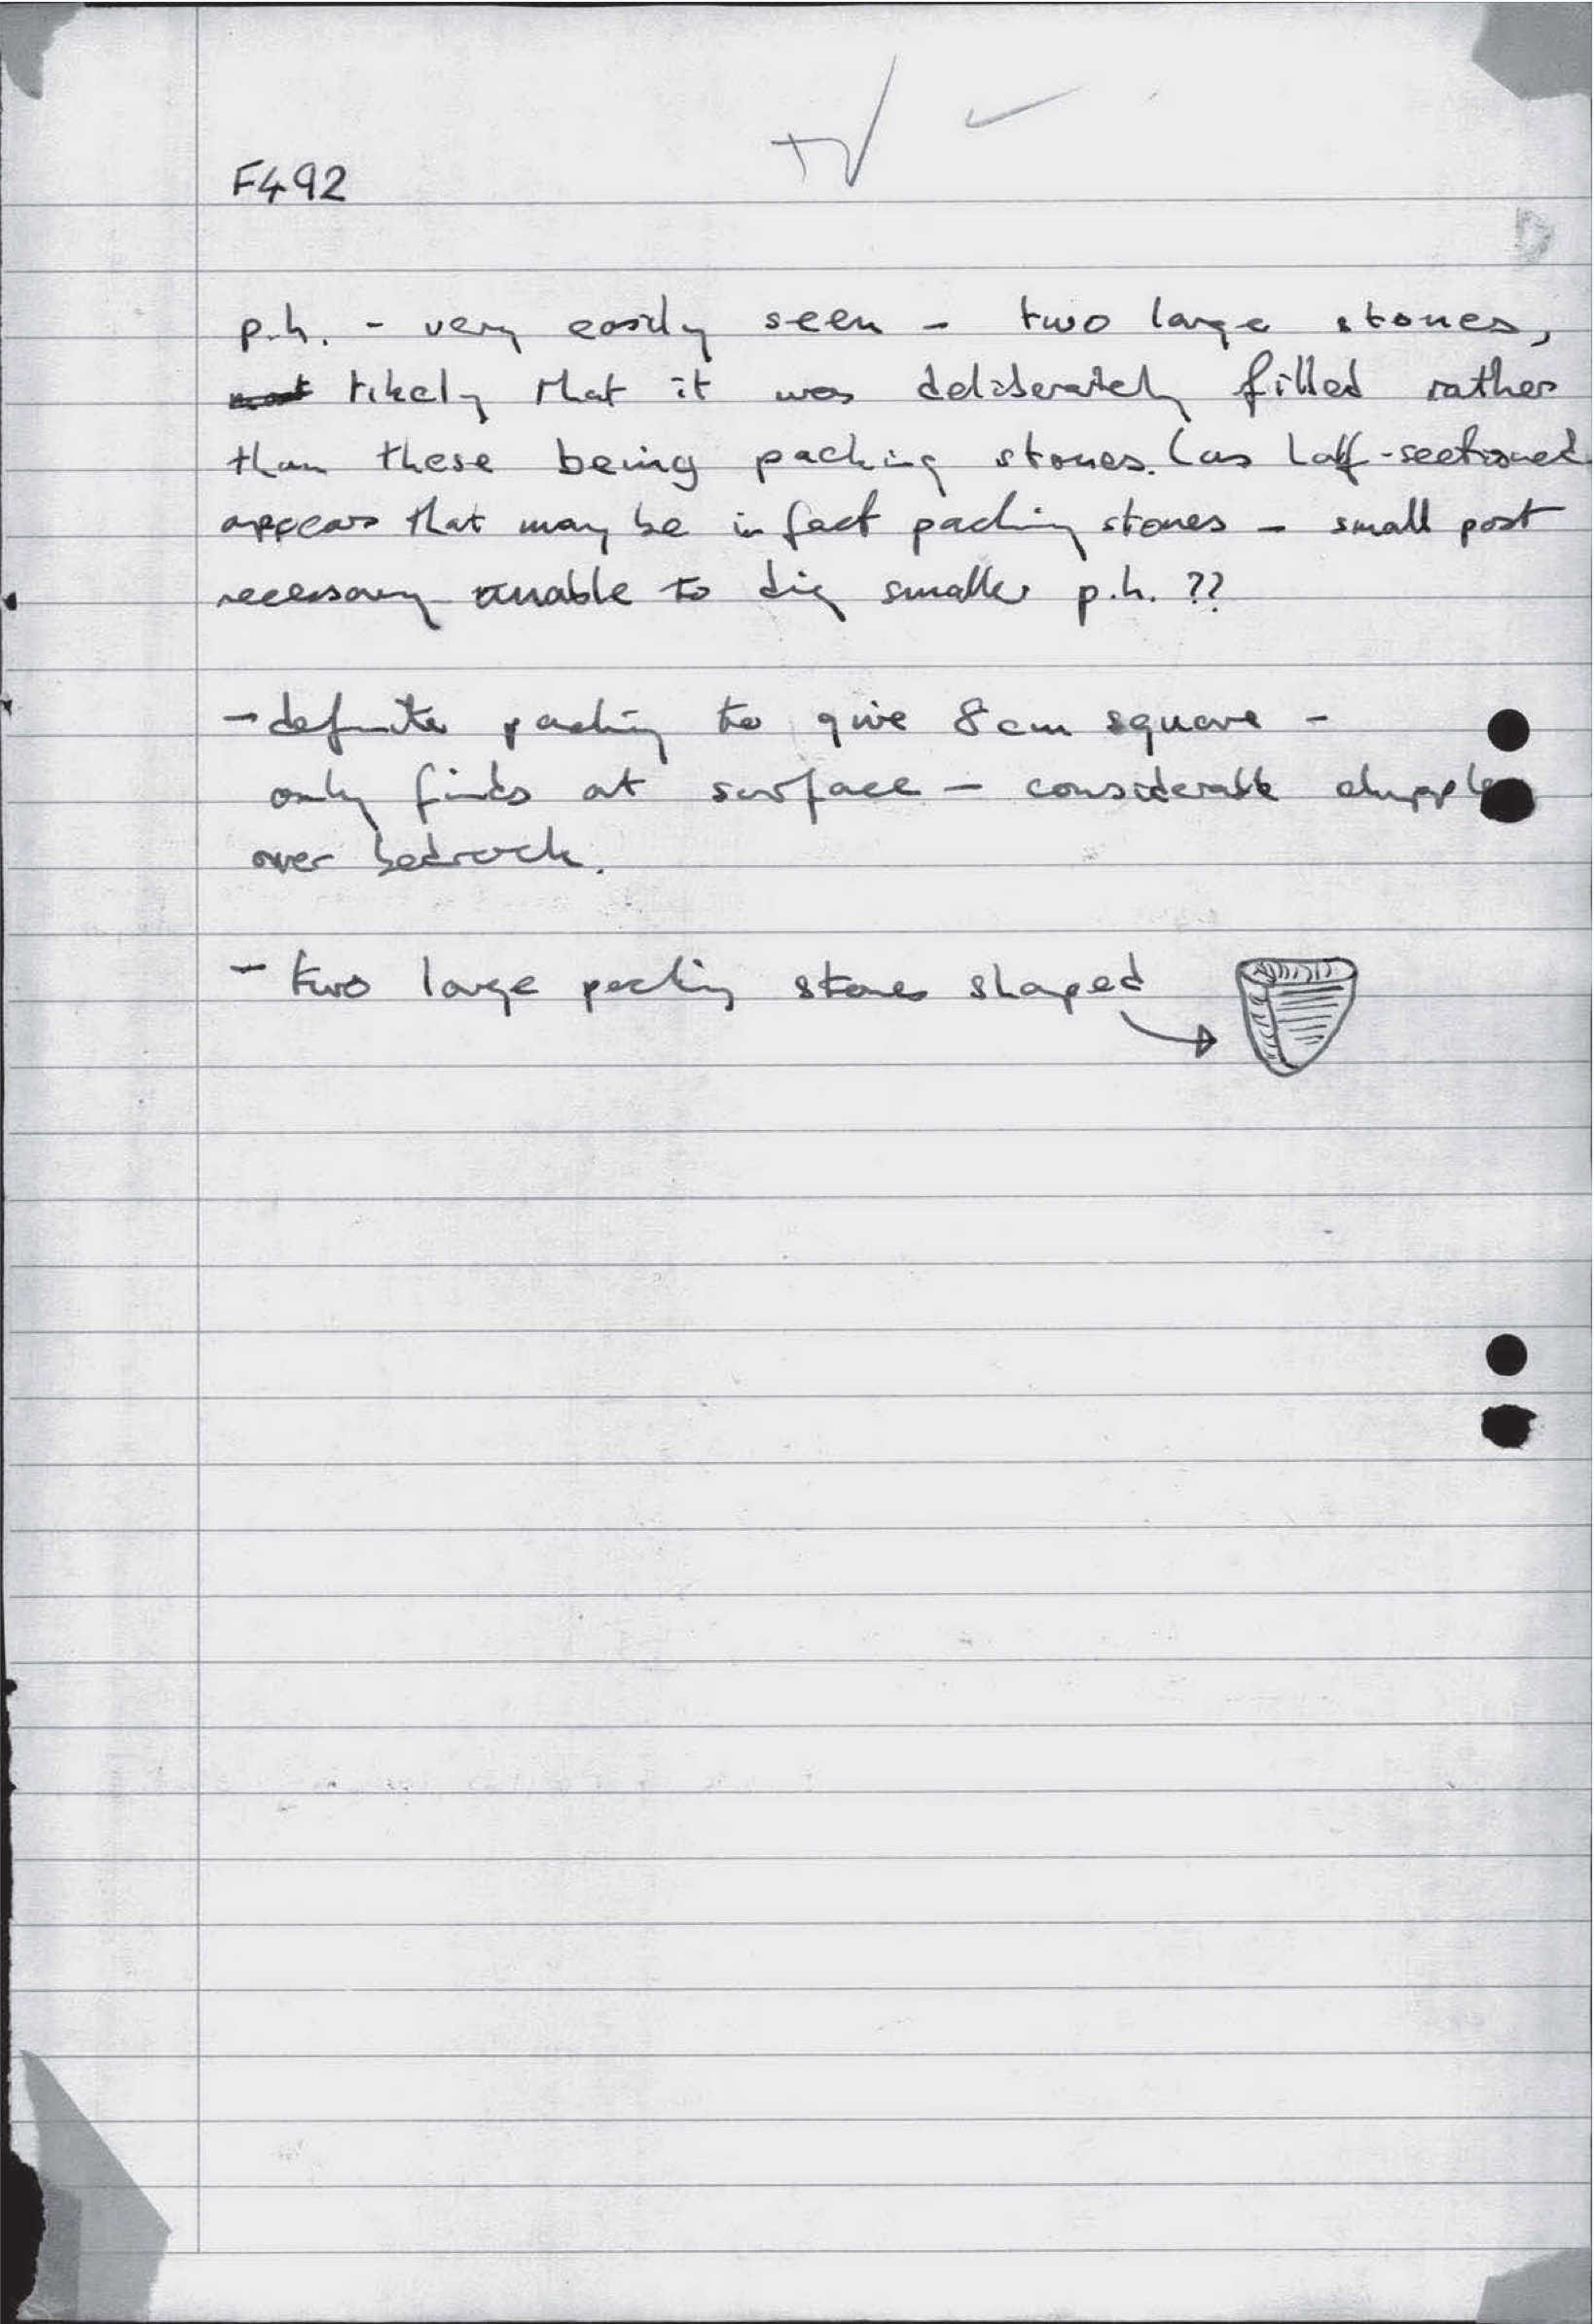 F492
p.h. - very easily seen - two large stones,
likely that it was deliberately filled rather
than these being packing stones. (as half-sectioned
appears that may be in fact packing stones - small post
necessary unable to dig smaller p.h. ??
- definite packing to give 8cm square -
only finds at surface - considerable
over bedrock.
- two large packing stones shaped